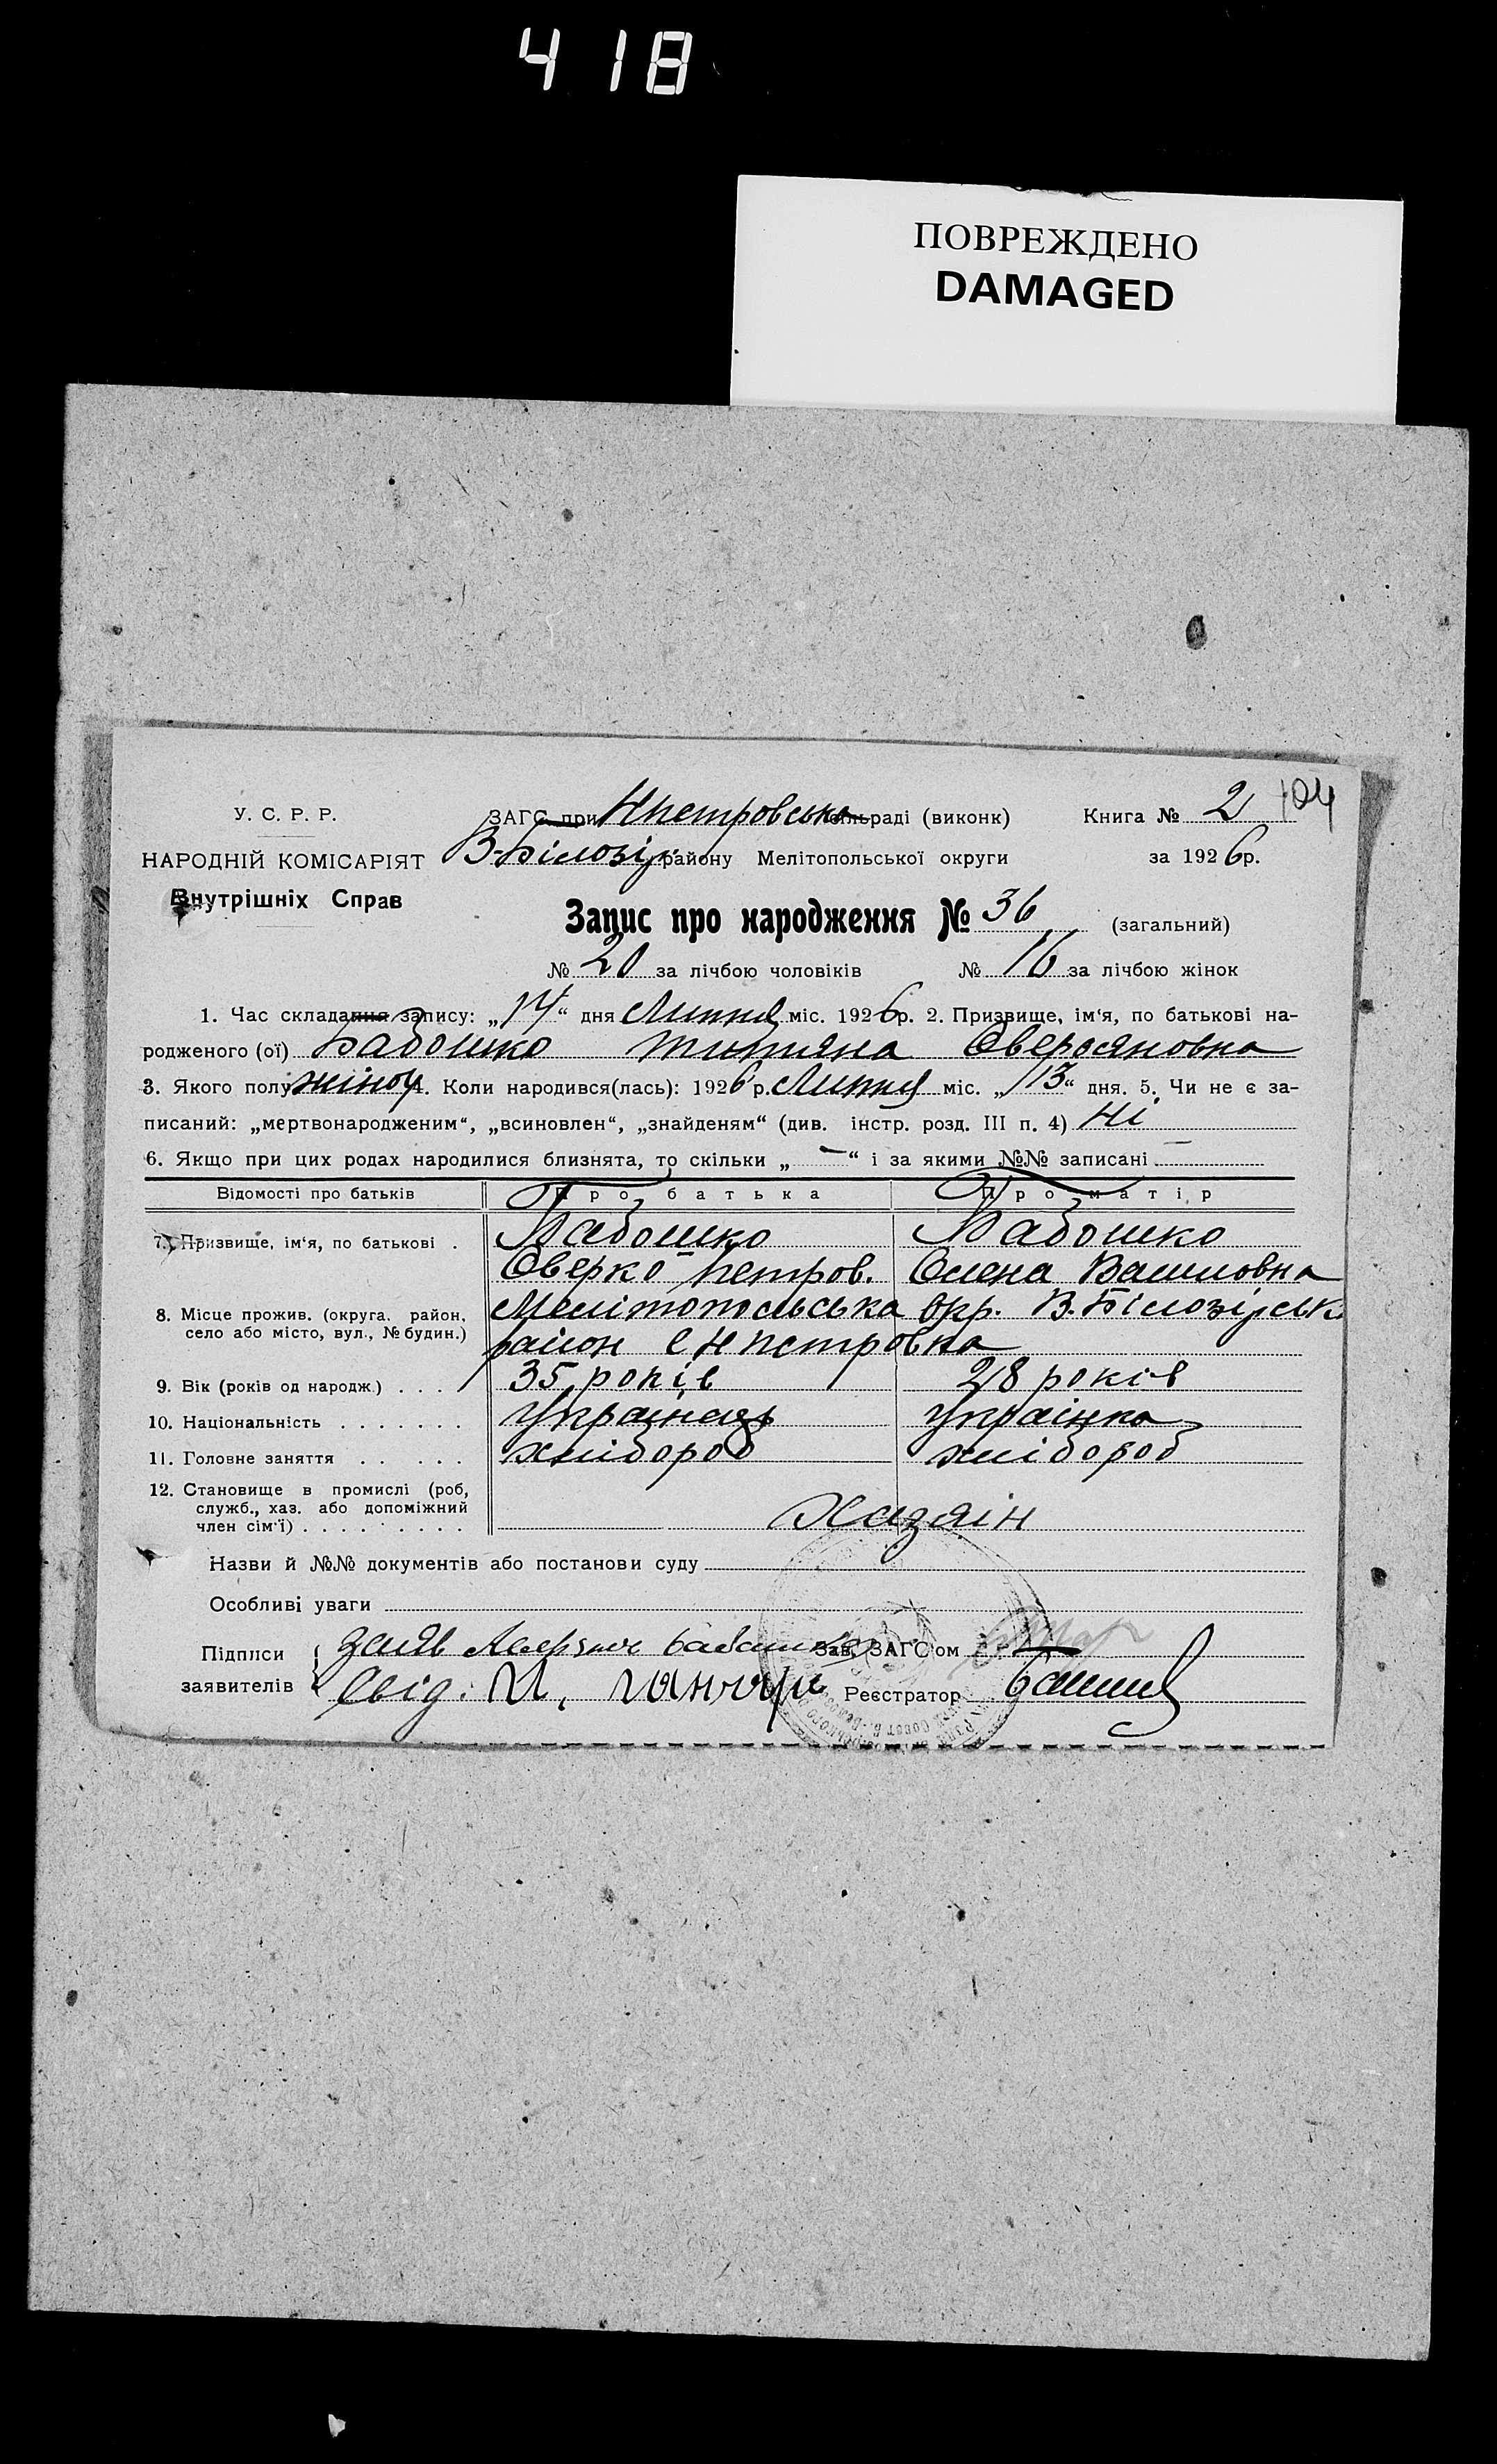 418
ПОВРЕЖДЕНО
DAMAGED
104
У. С. Р. Р.
ЗАГС при Нпетровська сільраді (виконк) Книга № 2
НАРОДНІЙ КОМІСАРІЯТ В-Білозір району Мелітопольської округи за 1926 р.
Внутрішніх Справ
Запис про народження № 36 (загальний)
№ 20 за лічбою чоловіків № 16 за лічбою жінок
1. Час складання запису: „14“ дня Липня міс. 1926 р. 2. Призвище, ім‘я, по батькові на-
родженого (ої) Бабошко Титяна
3. Якого полу жіноч 4. Коли народився(лась): 1926 р. Липня міс. „13“ дня. 5. Чи не є за-
писаний: „мертвонародженим“, „всиновлен“, „знайденям“ (див. інстр. розд. III п. 4) Ні
6. Якщо при цих родах народилися близнята, то скільки „ — “ і за якими №№ записані —
Відомості про батьків Про батька Про матір
7. Призвище, ім‘я, по батькові . Бабошко Бабошко
Оверко Петров. Олена Василовна
8. Місце прожив. (округа, район, Мелітопольська Окр. В. Білозірськ
село або місто, вул., № будин.) район с Нпетровка
9. Вік (років од народж.) . . . 35 років 28 років
10. Національність . . . . . . . Українець Українка
11. Головне заняття . . . . . хлібороб хлібороб
12. Становище в промислі (роб,
служб., хаз. або допоміжний
член сім‘ї) . . . . . . . . . Хазяін
Назви й №№ документів або постанови суду
Особливі уваги
Підписи Заяв Зав. ЗАГС‘ом
заявителів Свід. И. Ганчар Реєстратор